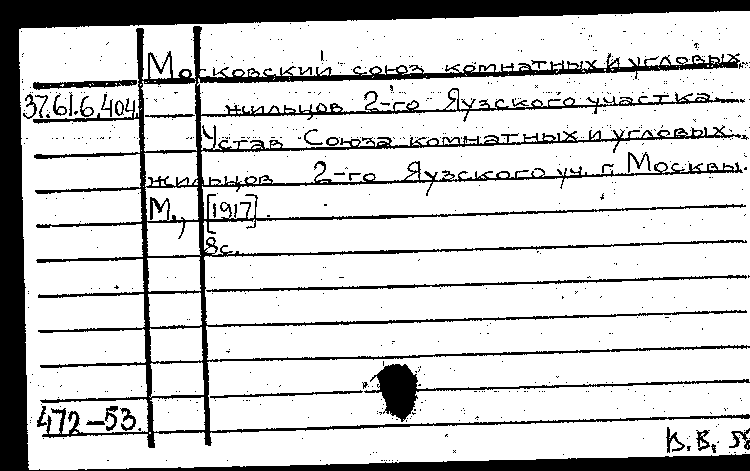 Московский союз комнатных и угловых
37.61.6.404. жильцов 2-го Яузского участка.
Устав Союза комнатных и угловых
жильцов 2-го Яузского уч. г. Москвы.
М., [1917].
8с.
472-53.
В.В. 58